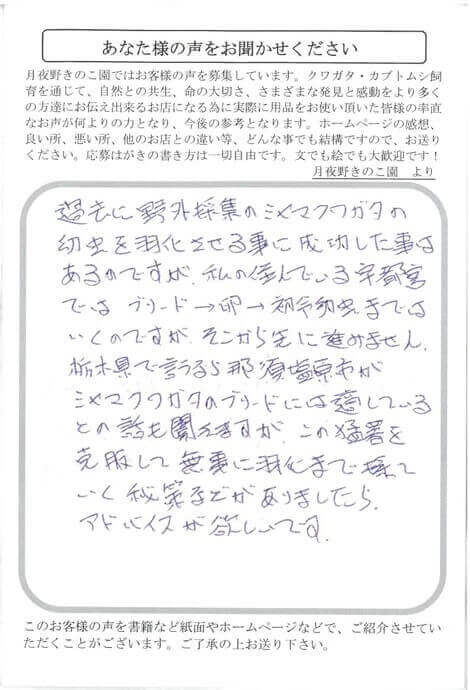 あなた様の声をお聞かせください
月夜野きのこ園ではお客様の声を募集しています。クワガタ・カブトムシ飼
育を通じて、自然との共生、命の大切さ、さまざまな発見と感動をより多く
の方達にお伝え出来るお店になる為に実際に用品をお使い頂いた皆様の率直
なお声が何よりの力となり、今後の参考となります。ホームページの感想、
良い所、悪い所、他のお店との違い等、どんな事でも結構ですので、お送り
ください。応募はがきの書き方は一切自由です。文でも絵でも大歓迎です！
月夜野きのこ園　より
過去に野外採集のミヤマクワガタの
幼虫を羽化させる事に成功した事は
あるのですが、私の住んでいる宇都宮
では ブリード→卵→初令幼虫までは
いくのですが、そこから先に進みません。
栃木県で言うなら那須塩原市が
ミヤマクワガタのブリードには適している
との話も聞きますが、この猛暑を
克服して無事に羽化まで持って
いく秘策などがありましたら、
アドバイスが欲しいです。
このお客様の声を書籍など紙面やホームページなどで、ご紹介させてい
ただくことがございます。ご了承の上お送り下さい。